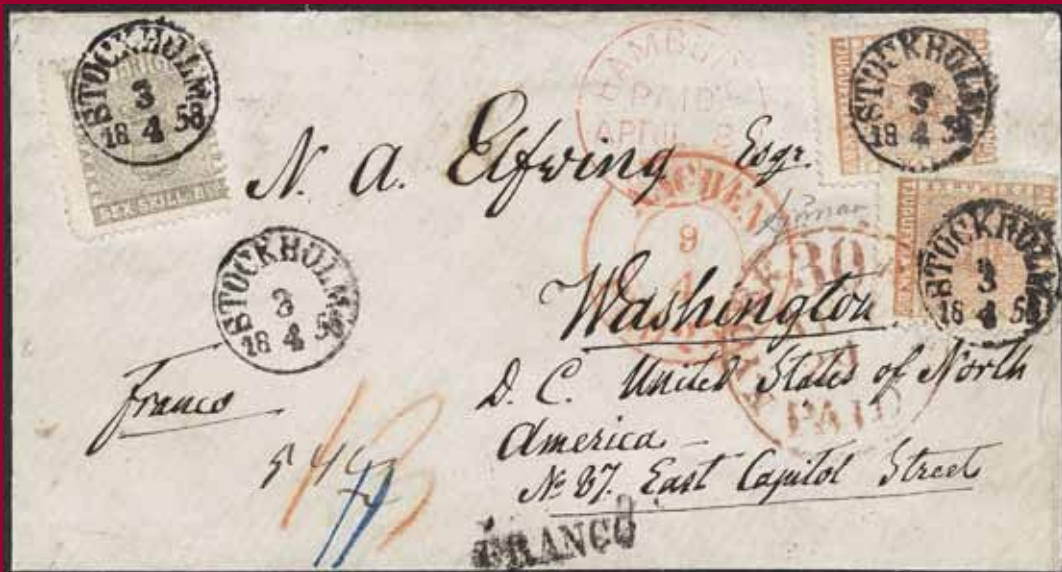 STOCKHOLM
3
18 4 58
SEX SKILL. B
HAMBURG
PAID
APRIL 8
STOCKHOLM
3
18 4 58
TJUGUFYRA
N. A. Elfwing Esqr.
AACHEN
9
4
30
PAID
STOCKHOLM
3
18 4 58
TJUGUFYRA SKILL
STOCKHOLM
3
18 4 58
Washington
Franco
D. C. United States of North
America
No 87. East Capitol Street
FRANCO